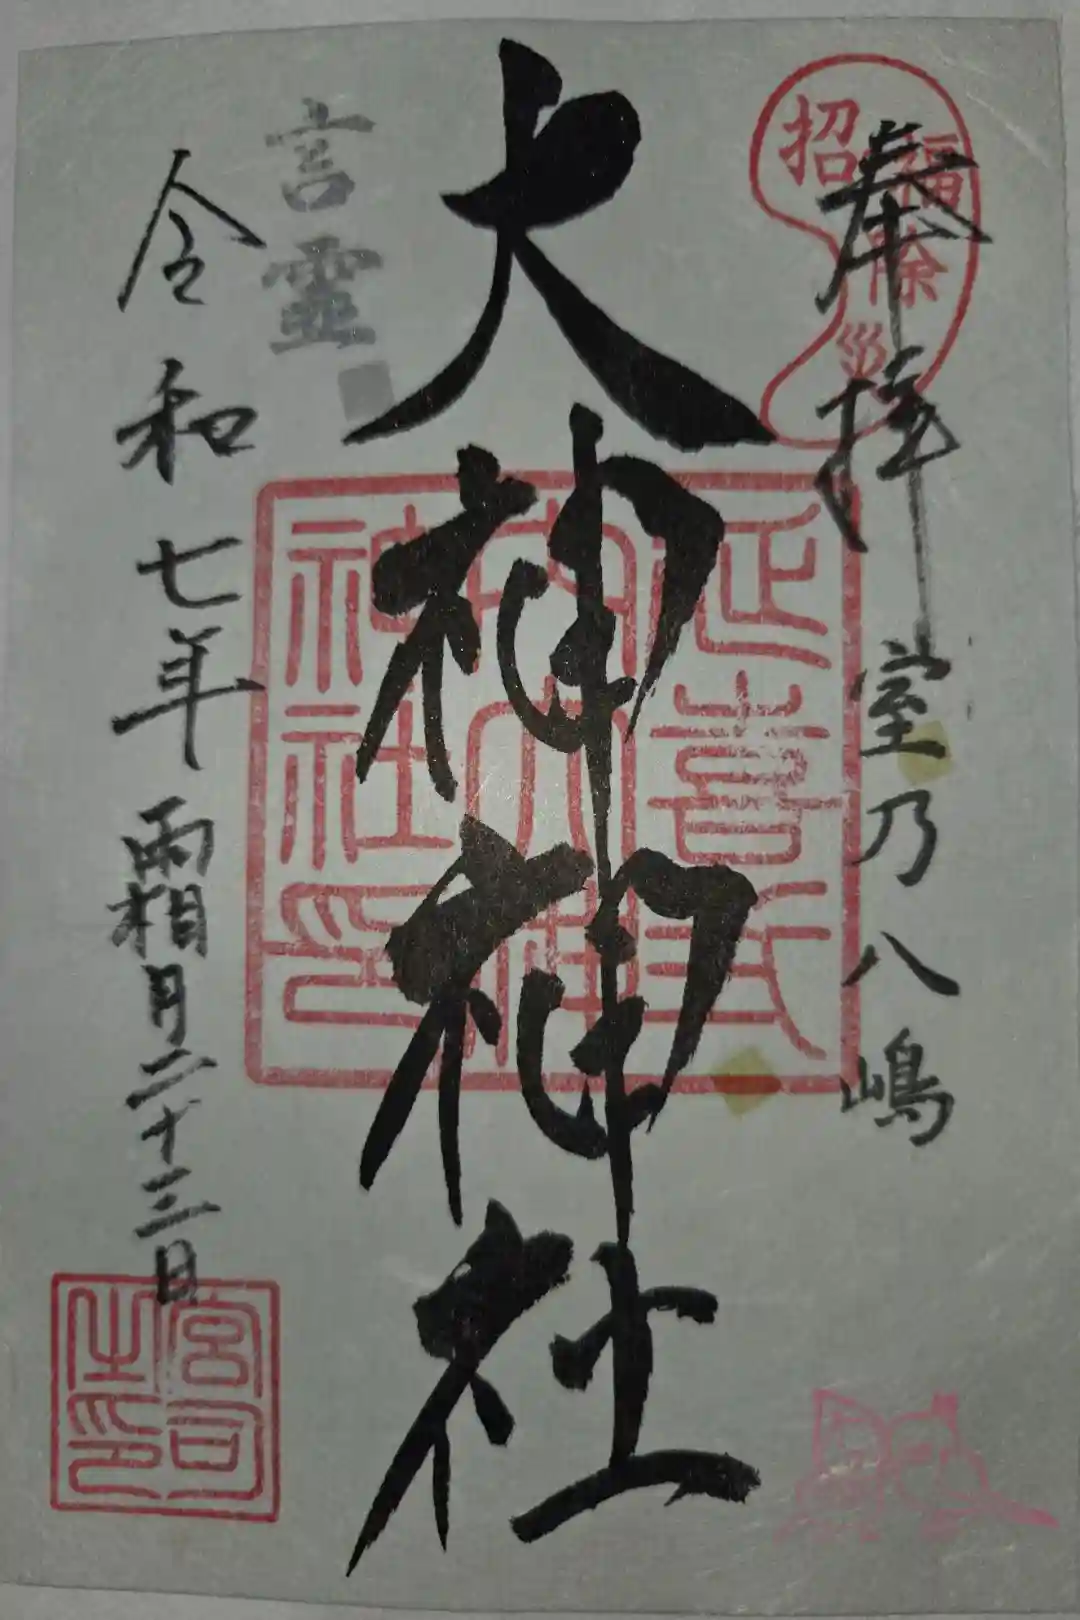 招福除災
奉拝 室乃八嶋
大神神社
延喜式
内大神
神社印
言霊
令和七年 霜月二十三日
宮司
之印